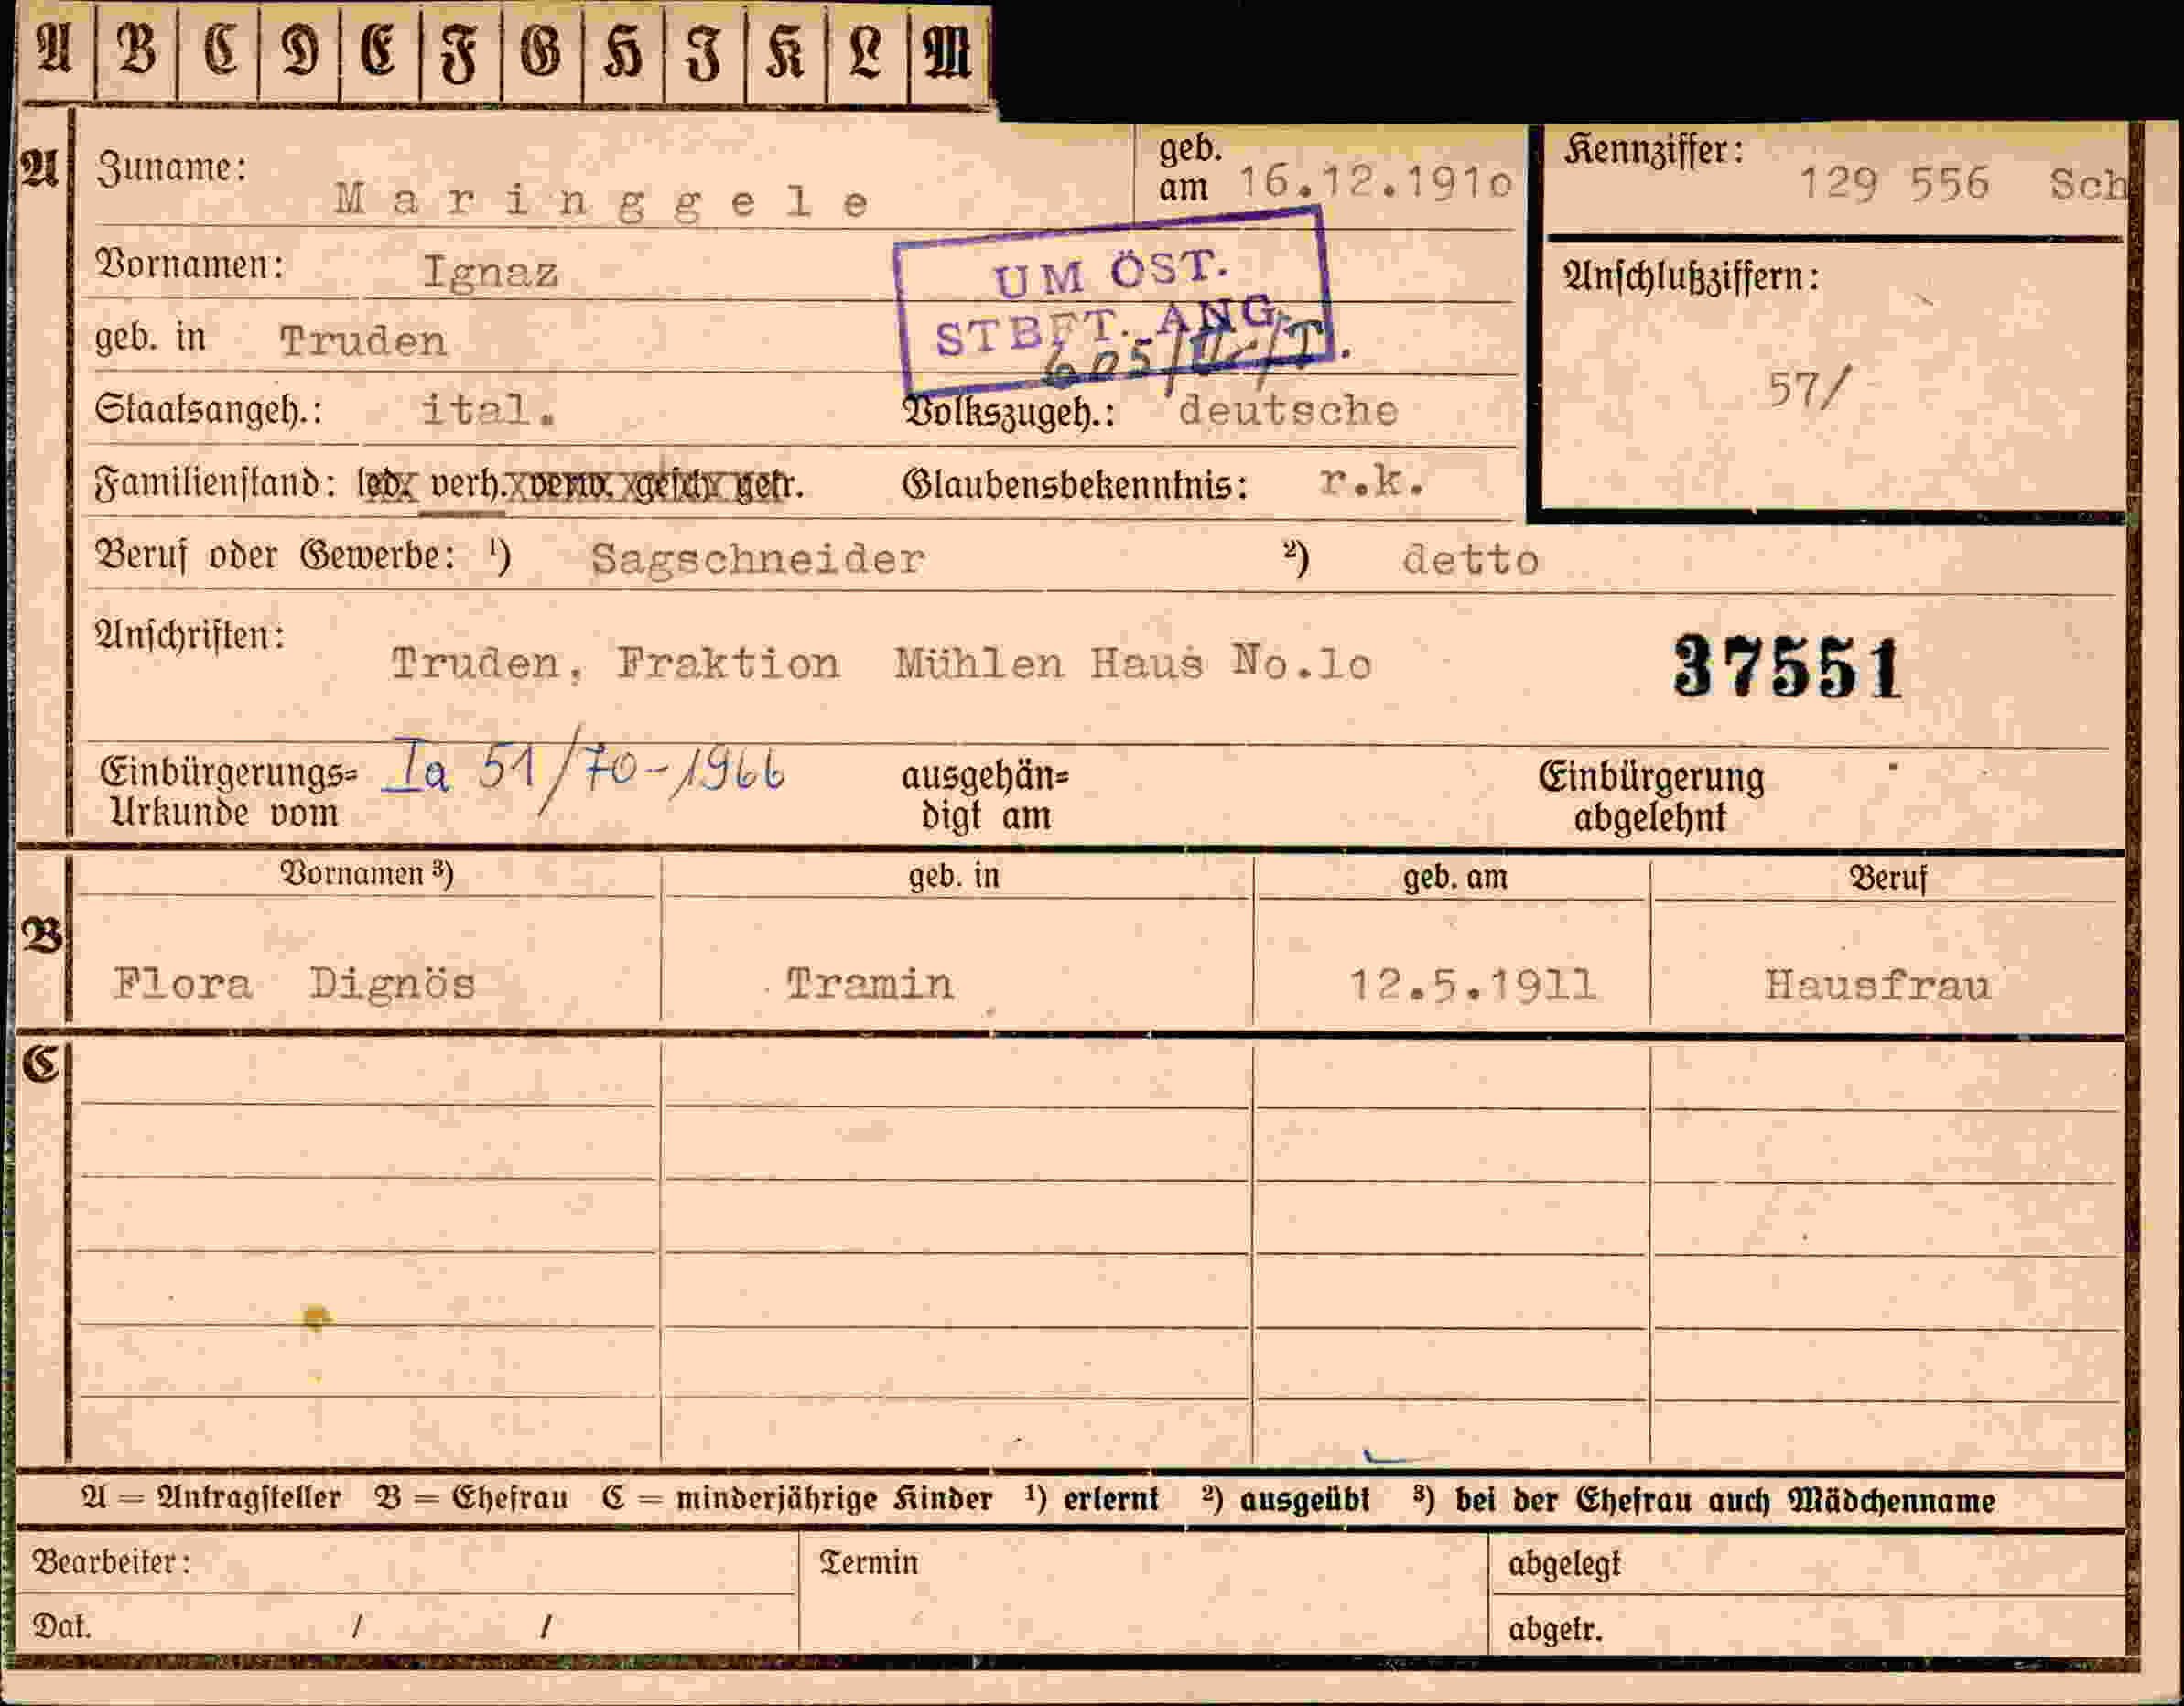 A B C D E F G H J K L M
A Zuname: Maringgele geb. am 16.12.191o Kennziffer: 129 556 Sch
Vornamen: Ignaz
UM ÖST.
STBFT. ANG.
Anschlußziffern:
geb. in Truden
57/
Staatsangeh.: ital. Volkszugeh.: deutsche
Familienstand: led. verh. verw. gesch. getr. Glaubensbekenntnis: r.k.
Beruf oder Gewerbe: ¹) Sagschneider ²) detto
Anschriften: Truden, Fraktion Mühlen Haus No.lo 37551
Einbürgerungs= Ia 51/70-1966 ausgehän= Einbürgerung
Urkunde vom digt am abgelehnt
Vornamen ³) geb. in geb. am Beruf
B Flora Dignös Tramin 12.5.1911 Hausfrau
C
A = Antragsteller B = Ehefrau C = minderjährige Kinder ¹) erlernt ²) ausgeübt ³) bei der Ehefrau auch Mädchenname
Bearbeiter: Termin abgelegt
Dat. / / abgetr.